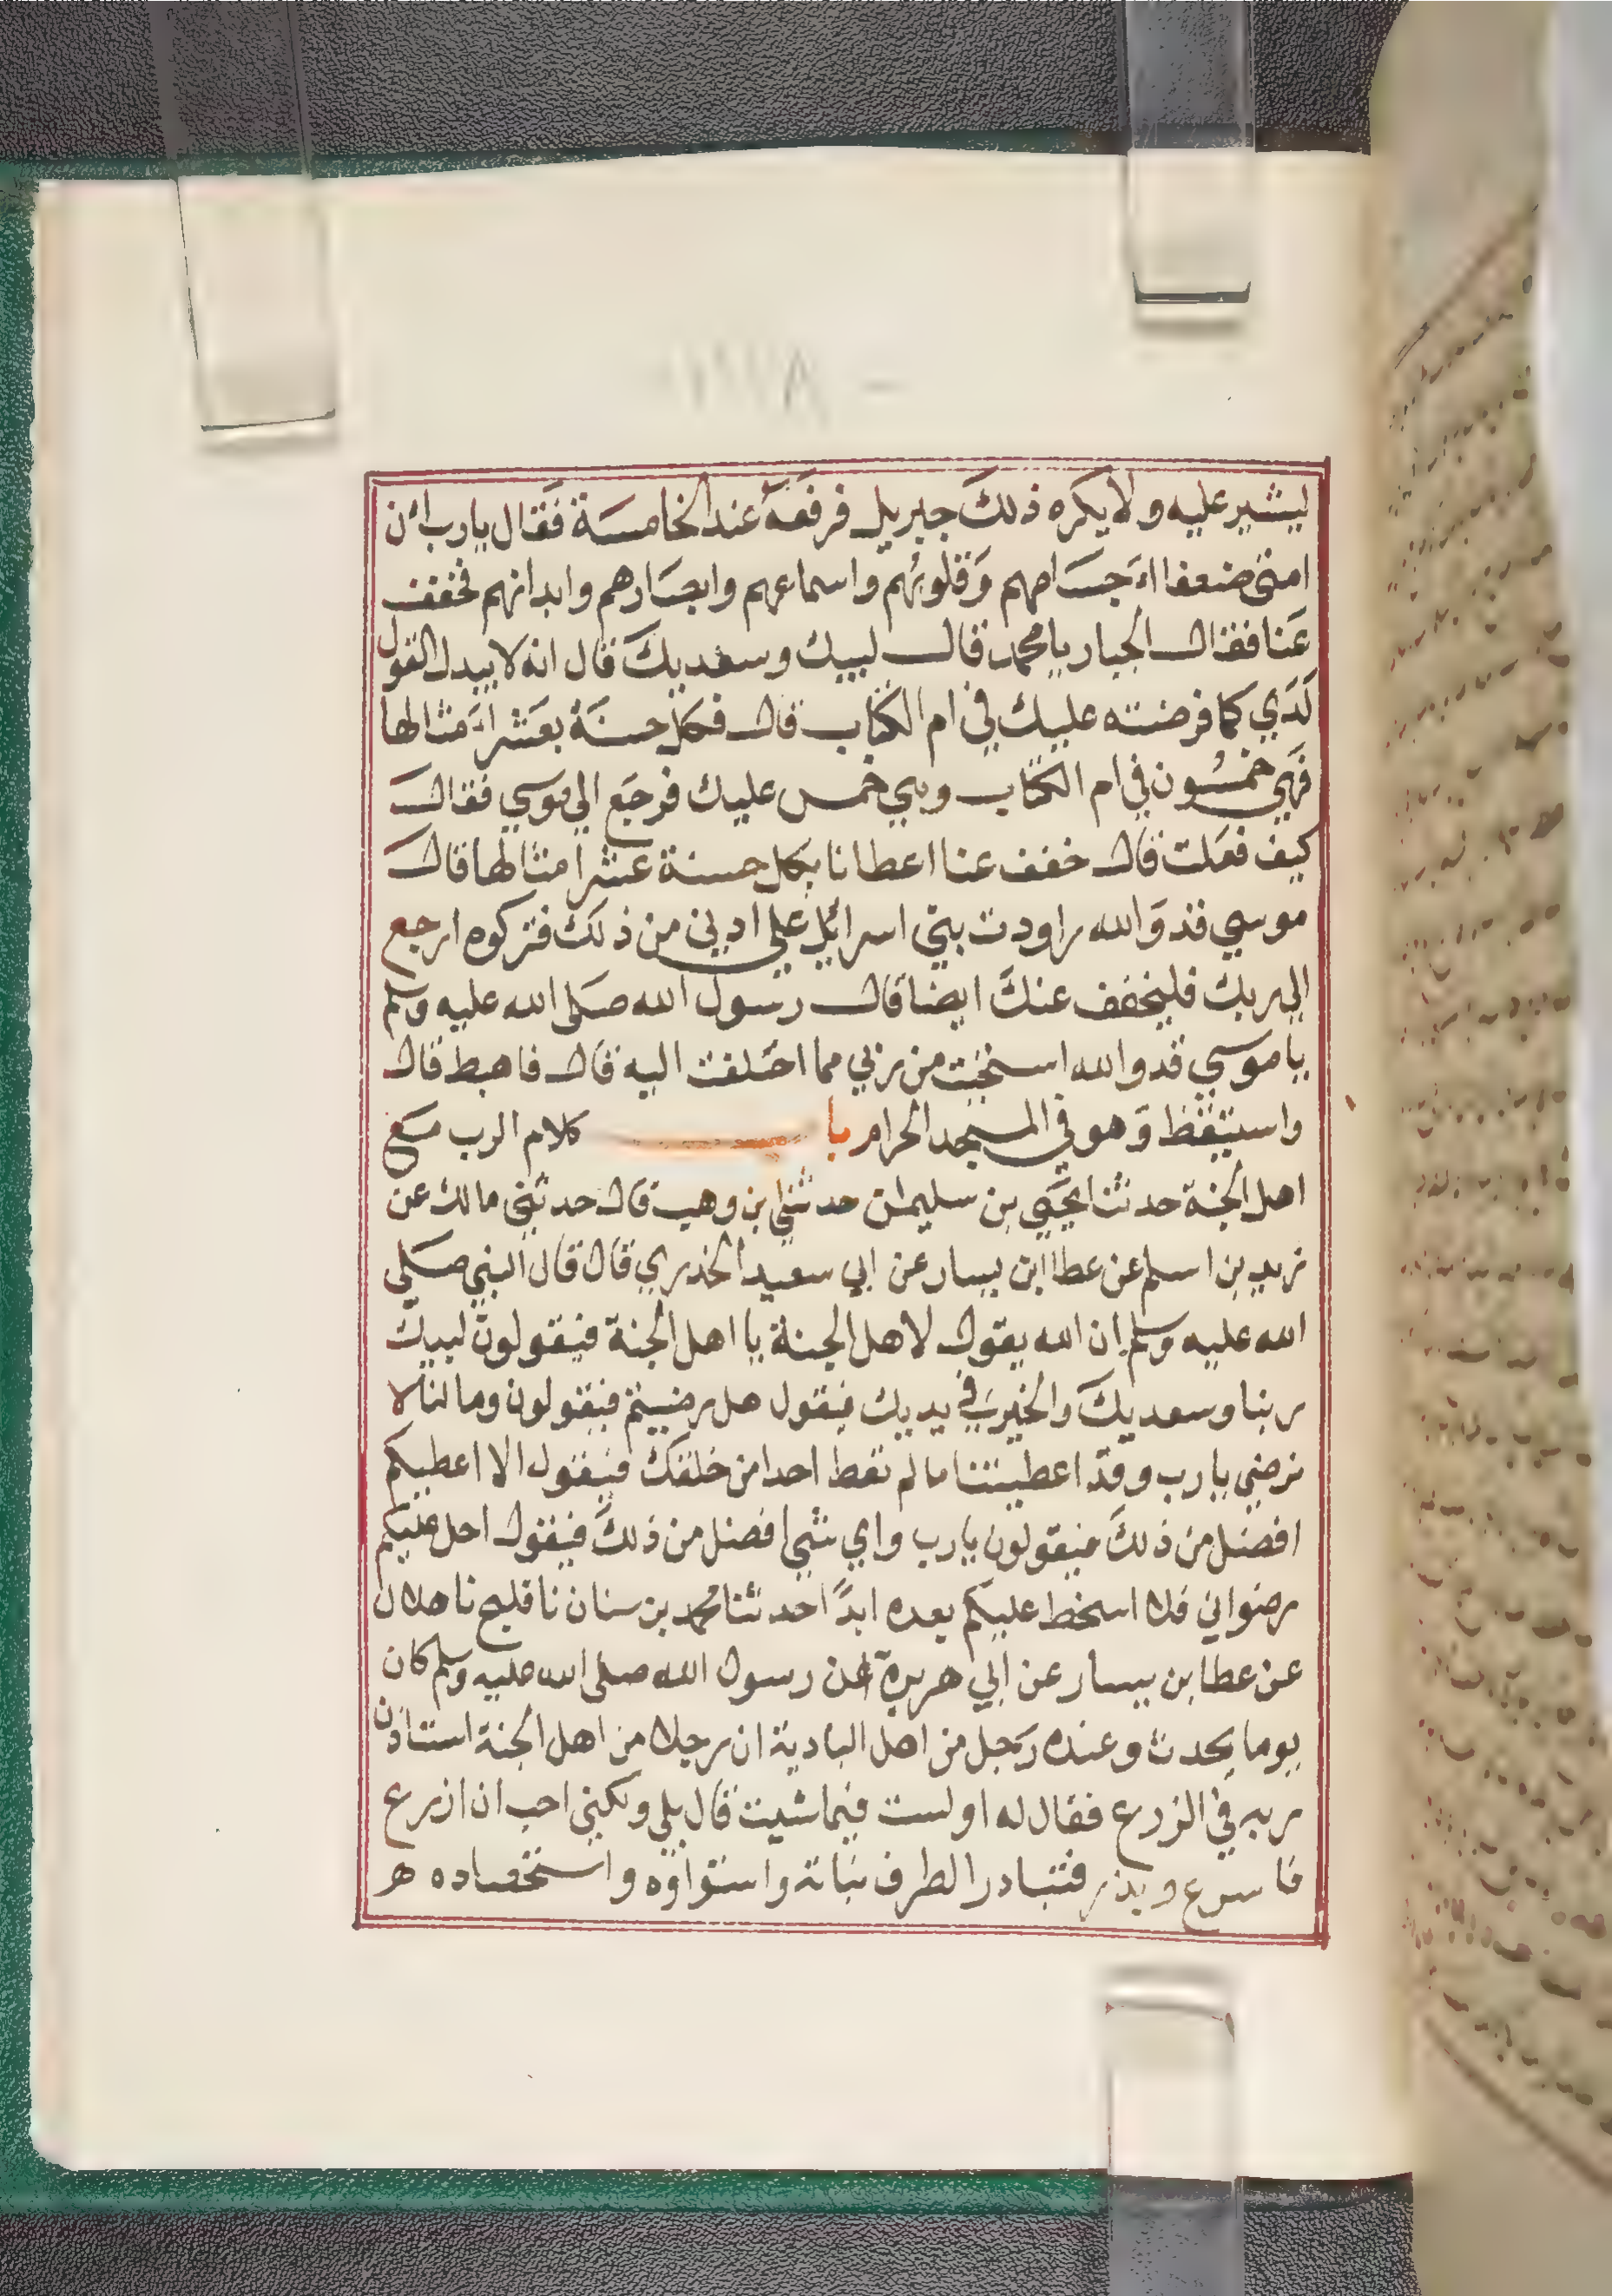 ليشير عليه ولا يكره ذلك جبريل فرفعه عند الخامسة فقال يارب ان
امتي ضعفا اجسامهم وقلوبهم واسماعهم وابصارهم وابدانهم فخفف
عنا فقال الجبار يا محمد قال لبيك وسعديك قال انه لا يبدل القول
لدي كما فرضته عليك في ام الكتاب قال فكل حسنة بعشر امثالها
فهي خمسون في ام الكتاب وهي خمس عليك فرجع الى موسي فقال
كيف فعلت قال خفف عنا اعطانا بكل حسنة عشر امثالها قال
موسي قد والله راودت بني اسرائيل علي ادني من ذلك فتركوه ارجع
الى ربك فليخفف عنك ايضا قال رسول الله صلى الله عليه وسلم
يا موسي قد والله استحيت من ربي مما اختلفت اليه قال فاهبط قال
واستيقظ وهو في المسجد الحرام باب كلام الرب مع
اهل الجنة حدثنا يحيى بن سليمان حدثني ابن وهب قال حدثني مالك عن
زيد بن اسلم عن عطا ابن يسار عن ابي سعيد الخدري قال قال النبي صلى
الله عليه وسلم ان الله يقول لاهل الجنة يا اهل الجنة فيقولون لبيك
ربنا وسعديك والخير في يديك فيقول هل رضيتم فيقولون وما لنا لا
نرضي يا رب وقد اعطيتنا ما لم تعط احدا من خلقك فيقول الا اعطيكم
افضل من ذلك فيقولون يارب واي شي افضل من ذلك فيقول احل عليكم
رضواني فلا اسخط عليكم بعده ابدا حدثنا محمد بن سنان نا فليح نا هلال
عن عطا بن يسار عن ابي هريرة عن رسول الله صلى الله عليه وسلم كان
يوما يحدث وعنده رجل من اهل البادية ان رجلا من اهل الجنة استاذن
ربه في الزرع فقال له اولست فيما شيت قال بلي ولكني احب ان ازرع
فاسرع وبذر فتبادر الطرف نباته واستواؤه واستحصاده ه